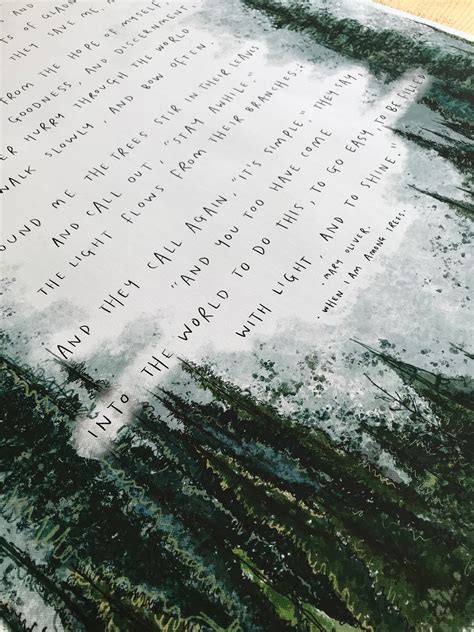 OF
THEY SAVE ME
FROM THE HOPE OF MYSELF,
GOODNESS, AND DISCERNMENT,
ER HURRY THROUGH THE WORLD
WALK SLOWLY, AND BOW OFTEN.
OUND ME THE TREES STIR IN THEIR LEAVES
AND CALL OUT, "STAY AWHILE."
THE LIGHT FLOWS FROM THEIR BRANCHES.
AND THEY CALL AGAIN, "IT'S SIMPLE," THEY SAY,
"AND YOU TOO HAVE COME
INTO THE WORLD TO DO THIS, TO GO EASY TO BE FILLED
WITH LIGHT, AND TO SHINE.
· MARY OLIVER.
· WHEN I AM AMONG TREES·